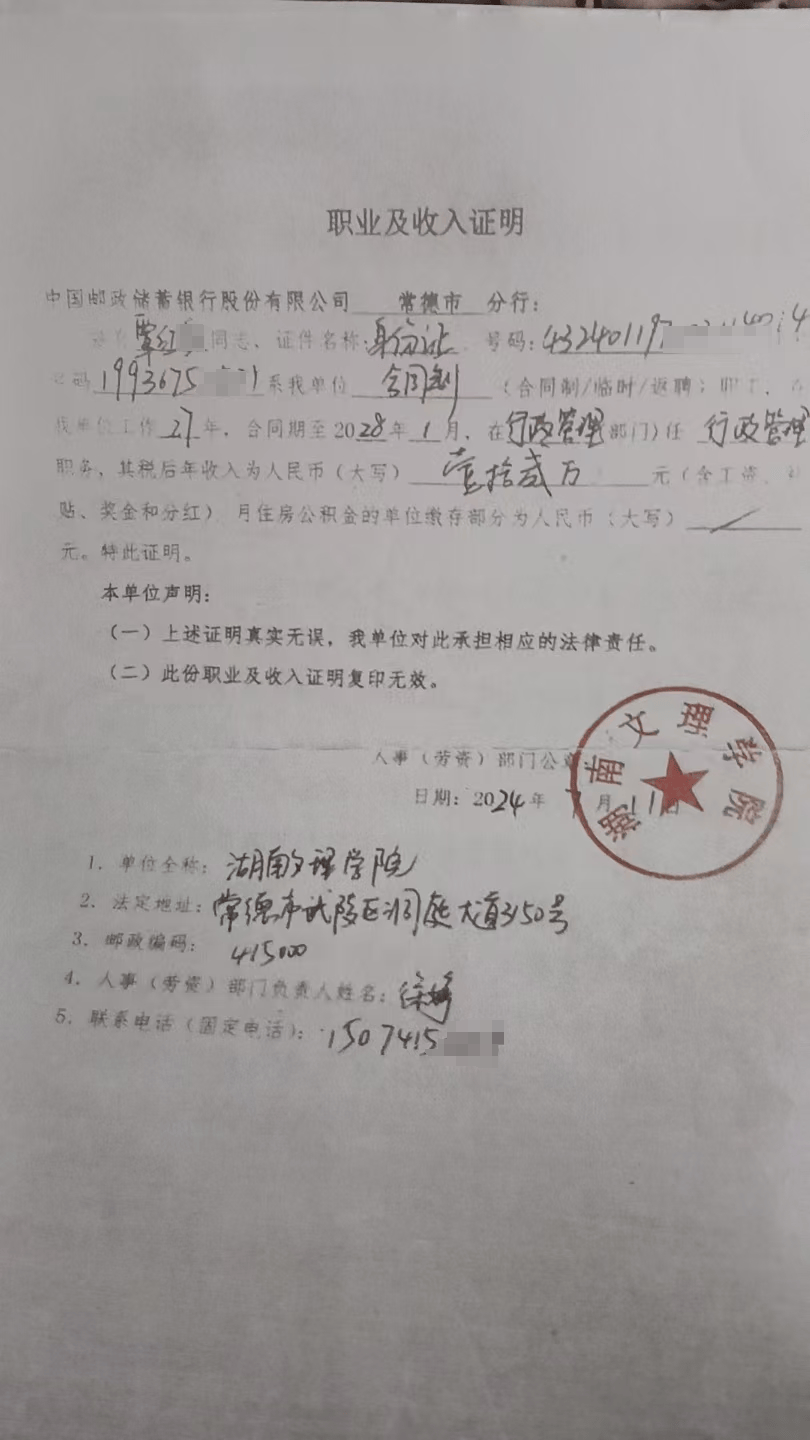 职业及收入证明
中国邮政储蓄银行股份有限公司 常德市 分行：
覃红 同志、证件名称：身份证 号码：43240119
码 1993675 系我单位 合同制 （合同制/临时/返聘）职工，在
我单位工作 27 年，合同期至2028年1月，在（行政管理 部门）任 行政管理
职务，其税后年收入为人民币（大写） 壹拾贰万 元（含工资、补
贴、奖金和分红）月住房公积金的单位缴存部分为人民币（大写）
元。特此证明。
本单位声明：
（一）上述证明真实无误，我单位对此承担相应的法律责任。
（二）此份职业及收入证明复印无效。
湖南文理学院
人事（劳资）部门公章
日期：2024年 7月11日
1. 单位全称：湖南文理学院
2. 法定地址：常德市武陵区洞庭大道3150号
3. 邮政编码：415000
4. 人事（劳资）部门负责人姓名：徐婷
5. 联系电话（固定电话）：1507415